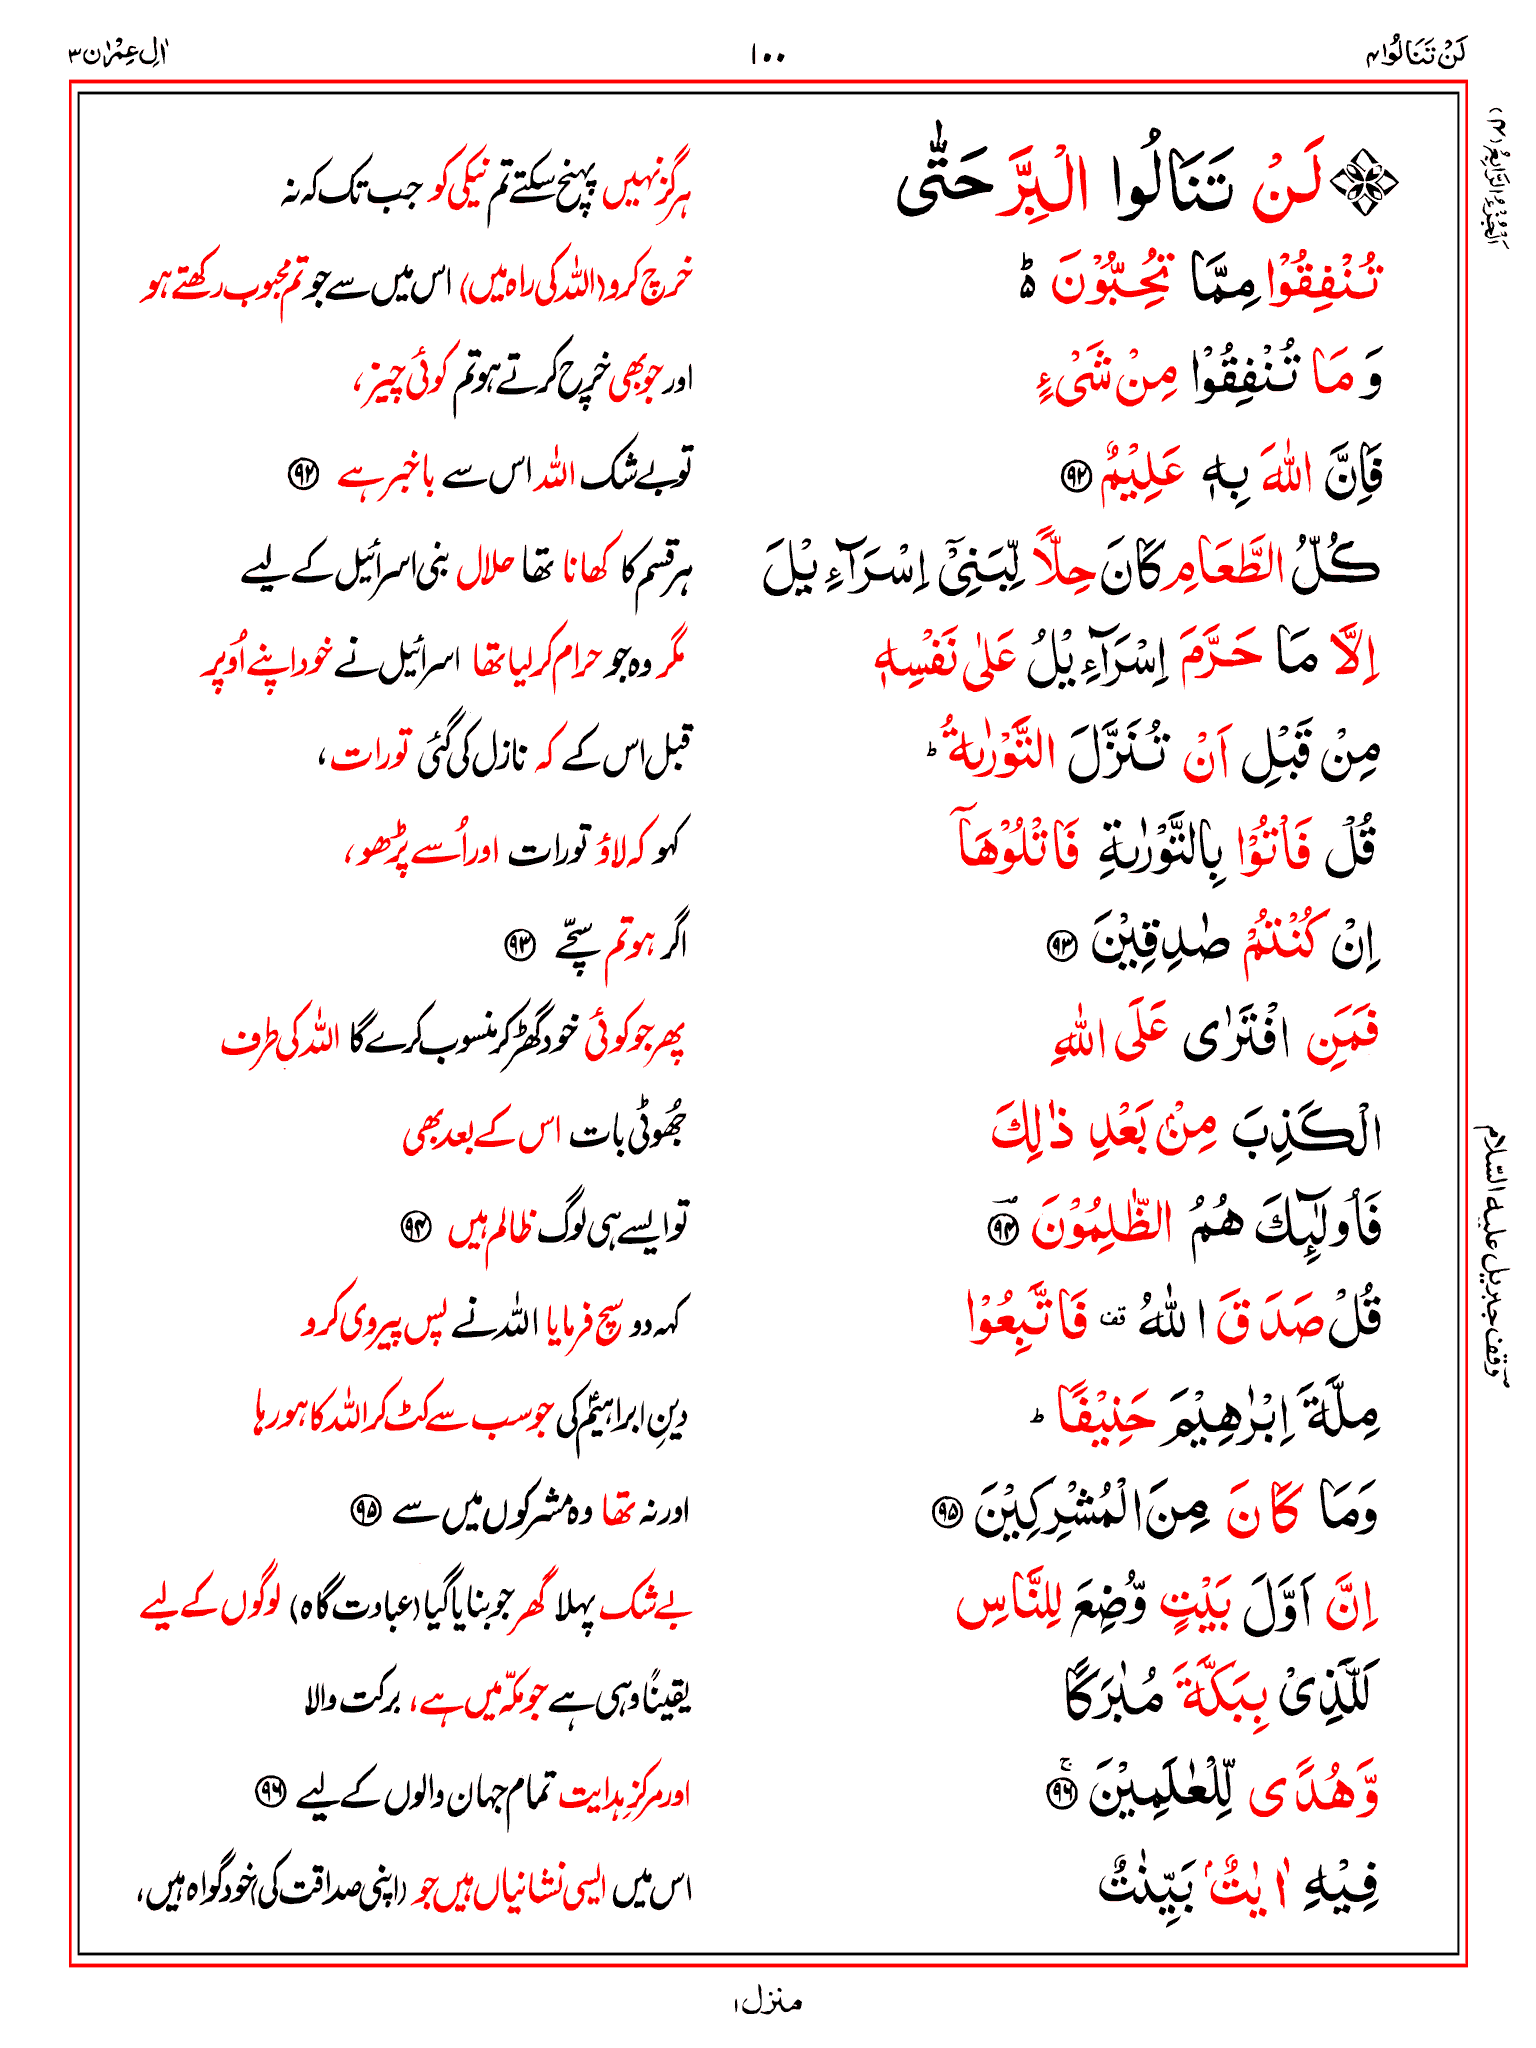 لَنْ تَنَالُوا ۴
۱۰۰
اٰلِ عِمْرٰن ۳
اَلْجُزْءُ الرَّابِعُ (۴)
لَنْ تَنَالُوا الْبِرَّ حَتّٰى
ہرگز نہیں پہنچ سکتے تم نیکی کو جب تک کہ نہ
تُنْفِقُوْا مِمَّا تُحِبُّوْنَ ؕ۵
خرچ کرو (اللہ کی راہ میں) اس میں سے جو تم محبوب رکھتے ہو
وَ مَا تُنْفِقُوْا مِنْ شَیْءٍ
اور جو بھی خرچ کرتے ہو تم کوئی چیز،
فَاِنَّ اللّٰهَ بِهٖ عَلِیْمٌ ﴿۹۲﴾
تو بے شک اللہ اس سے باخبر ہے ﴿۹۲﴾
كُلُّ الطَّعَامِ كَانَ حِلًّا لِّبَنِیْۤ اِسْرَآءِیْلَ
ہر قسم کا کھانا تھا حلال بنی اسرائیل کے لیے
اِلَّا مَا حَرَّمَ اِسْرَآءِیْلُ عَلٰی نَفْسِهٖ
مگر وہ جو حرام کر لیا تھا اسرائیل نے خود اپنے اُوپر
مِنْ قَبْلِ اَنْ تُنَزَّلَ التَّوْرٰىةُ ؕ
قبل اس کے کہ نازل کی گئی تورات،
قُلْ فَاْتُوْا بِالتَّوْرٰىةِ فَاتْلُوْهَاۤ
کہو کہ لاؤ تورات اور اُسے پڑھو،
اِنْ كُنْتُمْ صٰدِقِیْنَ ﴿۹۳﴾
اگر ہو تم سچّے ﴿۹۳﴾
فَمَنِ افْتَرٰی عَلَی اللّٰهِ
پھر جو کوئی خود گھڑ کر منسوب کرے گا اللہ کی طرف
الْكَذِبَ مِنْۢ بَعْدِ ذٰلِكَ
جُھوٹی بات اس کے بعد بھی
فَاُولٰٓىِٕكَ هُمُ الظّٰلِمُوْنَ ﴿۹۴﴾ؔ
تو ایسے ہی لوگ ظالم ہیں ﴿۹۴﴾
قُلْ صَدَقَ اللّٰهُ قف فَاتَّبِعُوْا
کہہ دو سچ فرمایا اللہ نے پس پیروی کرو
مِلَّةَ اِبْرٰهِیْمَ حَنِیْفًا ؕ
دینِ ابراہیمؑ کی جو سب سے کٹ کر اللہ کا ہو رہا
وَمَا كَانَ مِنَ الْمُشْرِكِیْنَ ﴿۹۵﴾
اور نہ تھا وہ مشرکوں میں سے ﴿۹۵﴾
اِنَّ اَوَّلَ بَیْتٍ وُّضِعَ لِلنَّاسِ
بے شک پہلا گھر جو بنایا گیا (عبادت گاہ) لوگوں کے لیے
لَلَّذِیْ بِبَكَّةَ مُبٰرَكًا
یقینًا وہی ہے جو مکّہ میں ہے، برکت والا
وَّ هُدًی لِّلْعٰلَمِیْنَ ﴿۹۶﴾ۚ
اور مرکزِ ہدایت تمام جہان والوں کے لیے ﴿۹۶﴾
فِیْهِ اٰیٰتٌۢ بَیِّنٰتٌ
اس میں ایسی نشانیاں ہیں جو (اپنی صداقت کی) خود گواہ ہیں،
وقف جبریل علیہ السّلام
منزل ۱